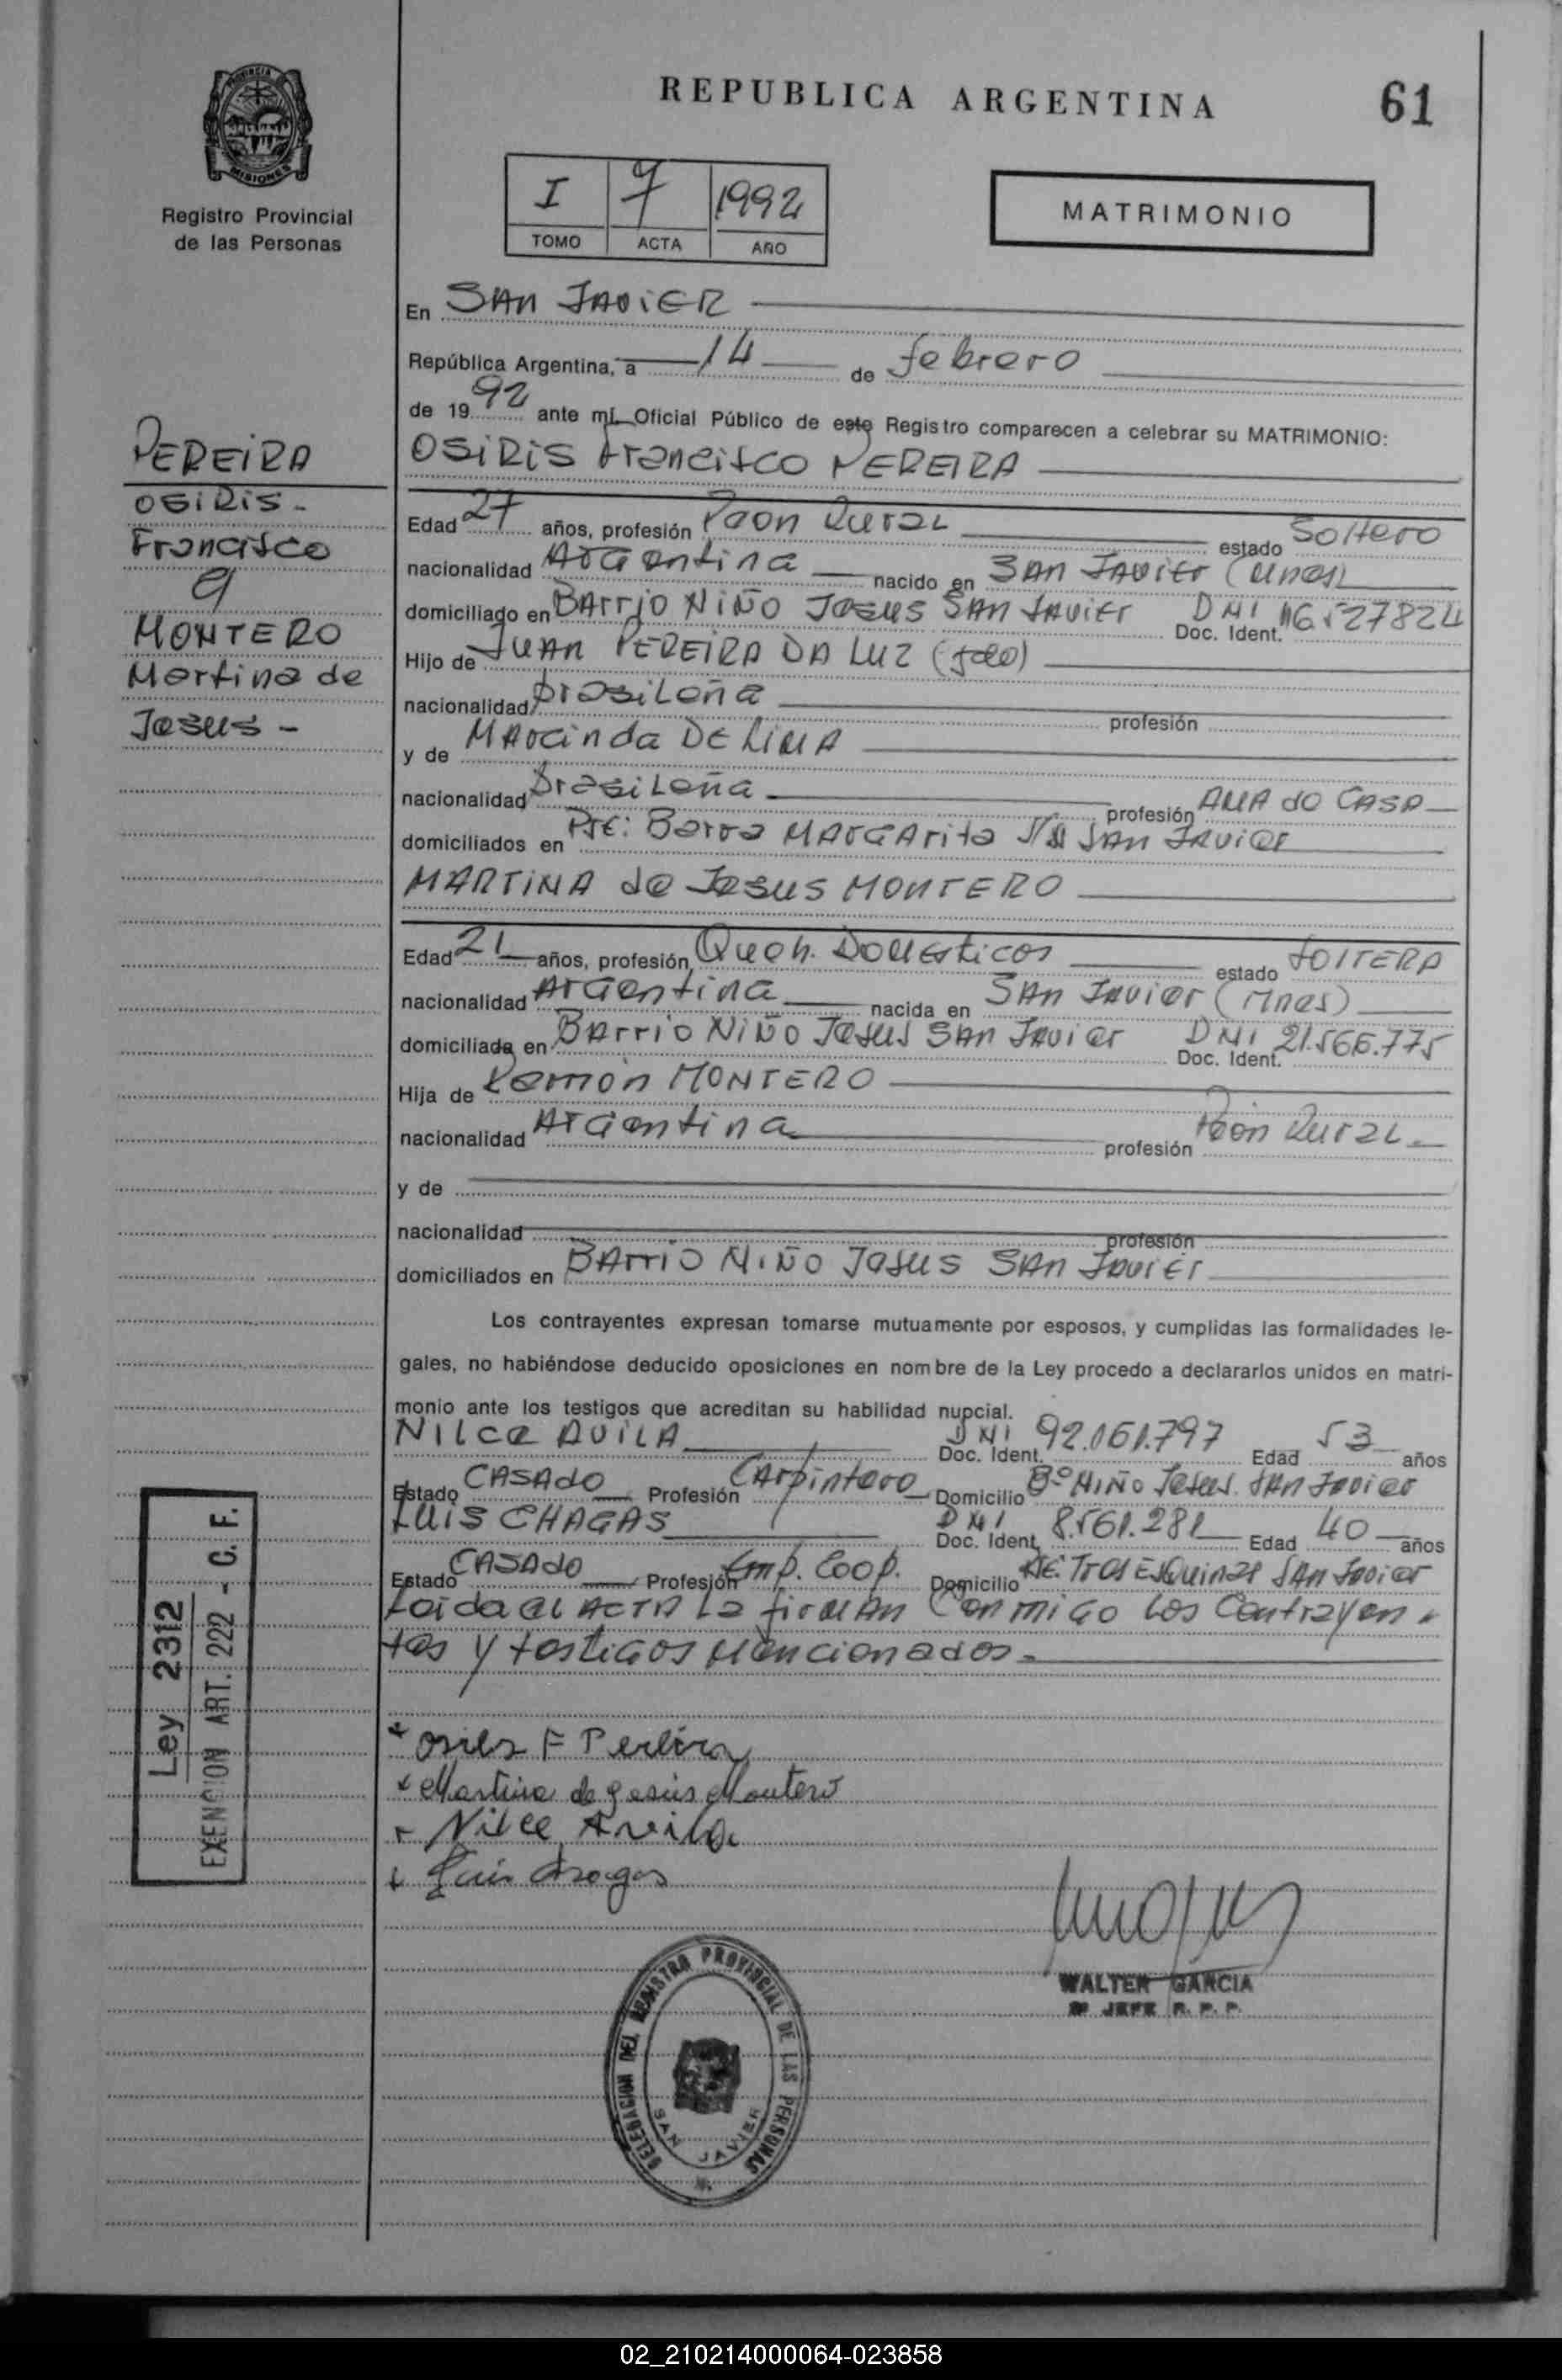 REPUBLICA ARGENTINA
61
PROVINCIA
MISIONES
Registro Provincial
de las Personas
I 7 1992
TOMO ACTA AÑO
MATRIMONIO
En SAN JAVIER
República Argentina, a 14 de febrero
de 1992 ante mí Oficial Público de este Registro comparecen a celebrar su MATRIMONIO:
OSIRIS Francisco PEREIRA
PEREIRA
OSIRIS -
Francisco
MONTERO
Martina de
Jesus -
Edad 27 años, profesión Peon Rural estado Soltero
nacionalidad Argentina nacido en SAN JAVIER (Mnes)
domiciliado en BArrio NIÑO JESUS SAN JAVIER DNI Doc. Ident. 16.527824
Hijo de JUAN PEREIRA DA LUZ (fdo)
nacionalidad brasileña profesión
y de Marcinda DE LIMA
nacionalidad brasileña profesión AMA de CASA
domiciliados en Pje: Barra MARGArita SAN JAVIER
MARTINA de Jesus MONTERO
Edad 21 años, profesión Queh. Domesticos estado SOLTERA
nacionalidad Argentina nacida en SAN JAVIER (Mnes)
domiciliada en BArrio NIÑO Jesus SAN JAVIER DNI Doc. Ident. 21.566.775
Hija de Ramón MONTERO
nacionalidad Argentina profesión Peon Rural -
y de
nacionalidad profesión
domiciliados en BArrio NIÑO Jesus SAN JAVIER
Los contrayentes expresan tomarse mutuamente por esposos, y cumplidas las formalidades le-
gales, no habiéndose deducido oposiciones en nombre de la Ley procedo a declararlos unidos en matri-
monio ante los testigos que acreditan su habilidad nupcial.
NILCE AVILA DNI Doc. Ident. 92.161.797 Edad 53 años
Estado CASADO Profesión Carpintero Domicilio Bº NIÑO Jesus SAN JAVIER
LUIS CHAGAS DNI Doc. Ident. 8.561.281 Edad 40 años
Estado CASADO Profesión Emp. Coop. Domicilio Tres ESQuinas SAN JAVIER
Leida el ACTA la firman Conmigo los Contrayen-
tes y testigos mencionados.-
Ley 2312
EXENCION ART. 222 - C. F.
Osiris F Pereira
Martina de Jesús Montero
Nilce Avila
Luis Chagas
WALTER GARCIA
JEFE R. P. P.
DELEGACION DEL REGISTRO PROVINCIAL DE LAS PERSONAS
SAN JAVIER
02_210214000064-023858